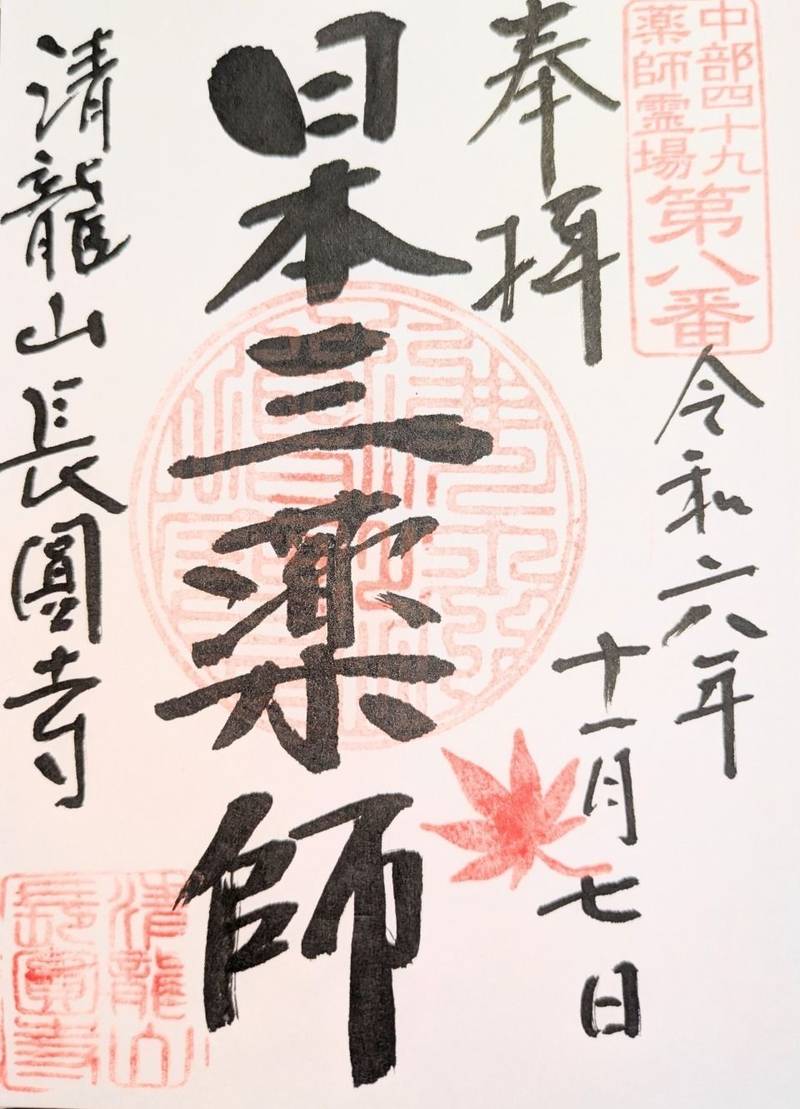 中部四十九
薬師霊場
第八番
奉拝
令和六年
十一月七日
日本三薬師
清龍山長圓寺
清龍山
長圓寺